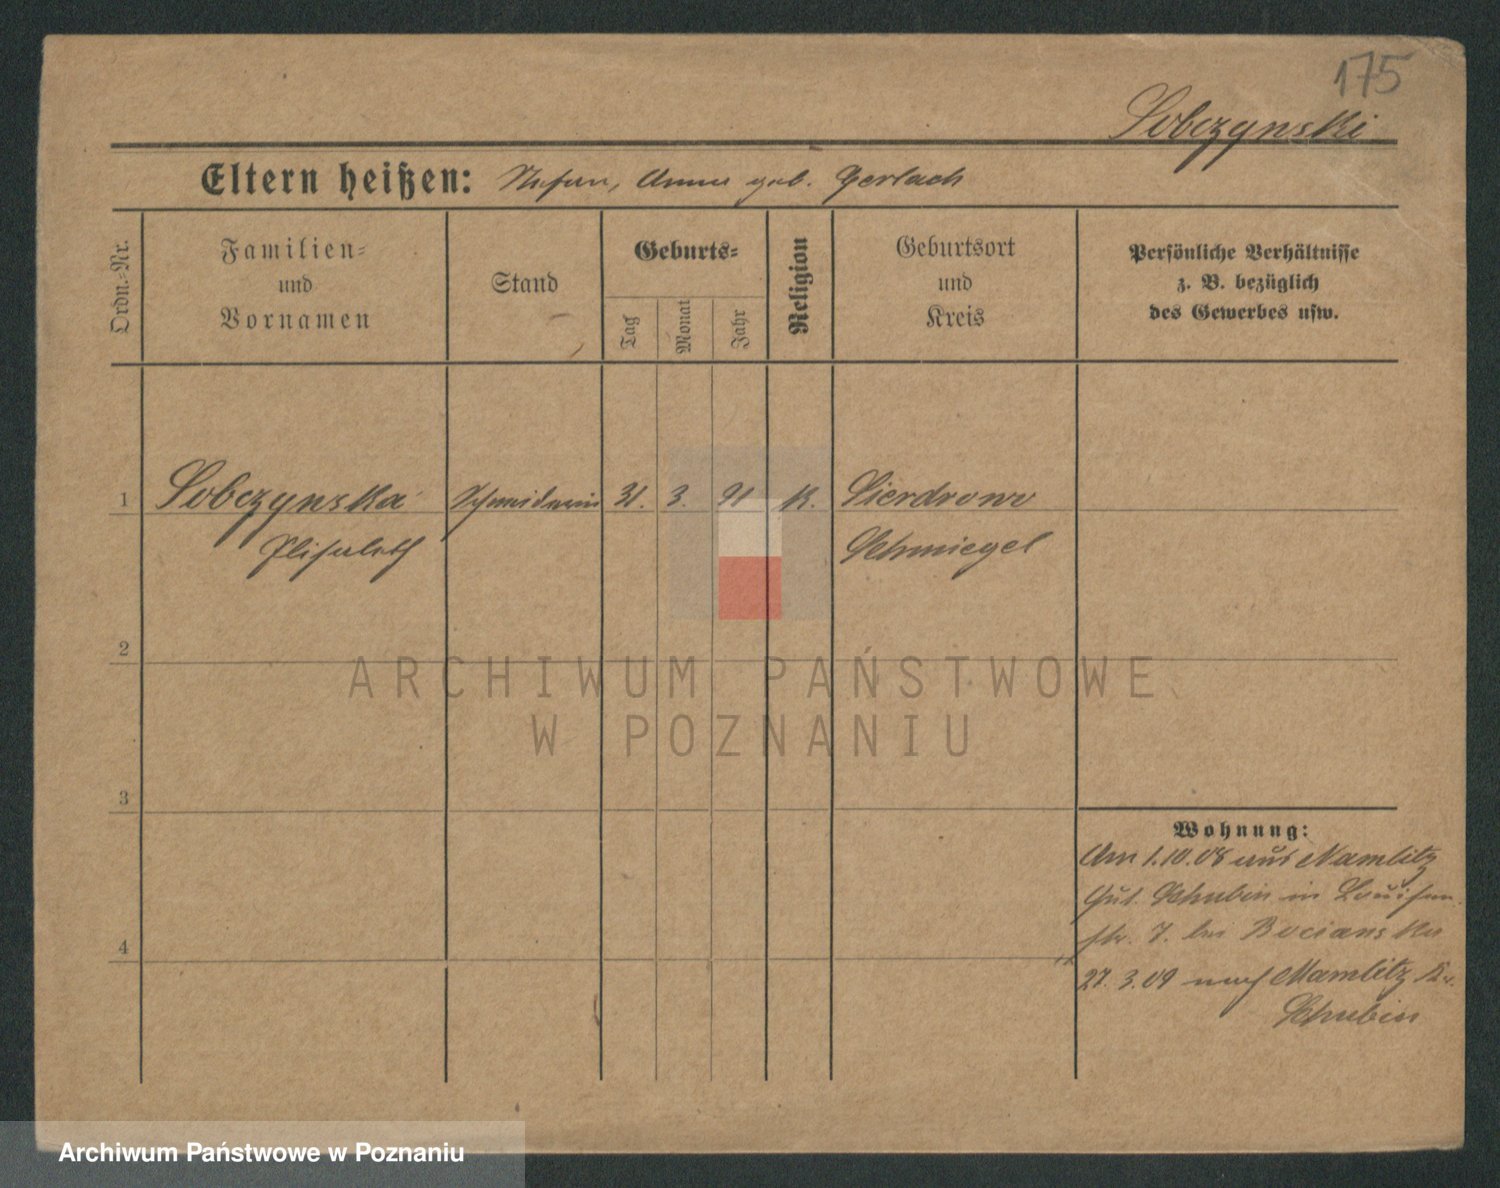 175
Sobczynski
Eltern heißen: Stefan, Anna geb. Gerlach
Ordn.-Nr.
Familien-
und
Vornamen
Stand
Geburts-
Tag
Monat
Jahr
Religion
Geburtsort
und
Kreis
Persönliche Verhältnisse
z. B. bezüglich
des Gewerbes usw.
1 Sobczynska Schneiderin 31. 3. 91 K. Sierdrowo
Elisabeth Schmiegel
2
3
4
Wohnung:
Am 1.10.08 aus Mamlitz
Gut. Schubin in Louisen
str. 7. bei Bocianska
27. 3. 09 nach Mamlitz Kr.
Schubin
ARCHIWUM PAŃSTWOWE
W POZNANIU
Archiwum Państwowe w Poznaniu